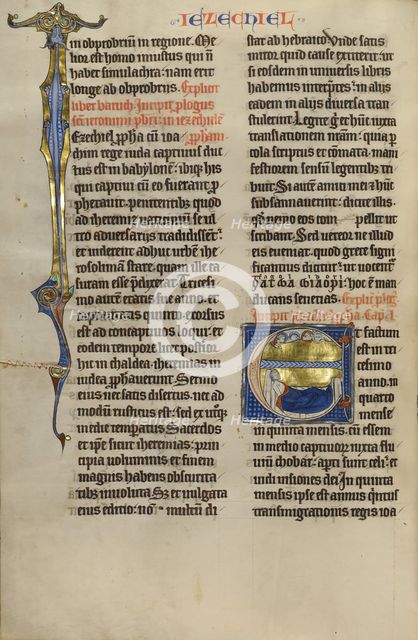 IEZECHIEL
in obprobrium in regione. Me
lior est homo iustus qui nō
habet simulachra: nam erit
longe ab obprobriis. Explicit
liber baruch. Incipit plogus
sci ieronimi pbri: in iezechiele
Ezechiel ppha cū ioa pphām.
chim rege iuda captiuus duc
tus est in babylonē: ibiqȝ his
qui captiui cū eo fuerant p
phetauit: penitentibus quod
ad iheremie vaticinium se ul
tro aduersariis tradidissent:
et uiderent adhuc urbē ihe
rosolimā stare: quam ille ca
suram esse pdixerat. Tricesimo
autem etatis sue anno. et
captiuitatis quinto: exorsus
est ad concaptiuos loqui: et
eodem tempore licet posterior
hic in chaldea: iheremias in
iudea pphauerunt. Sermo
eius: nec satis disertus: nec ad
modū rusticus est: sed ex utroqȝ
medie temperatus. Sacerdos
et ipse sicut iheremias: prin
cipia uoluminis et finem
magnis habens obscurita
tibȝ inuoluta. Sȝ et uulgata
eius editio: nō multum di
stat ab hebraico. Unde satis
miror quid cause extiterit: ut
si eosdem in uniuersis libris
habemus interptes: in aliis
eadem in aliis diuersa tran
stulerint. Legite g et hūc iuxta
translationem nrām: quia p
cola scriptus et cōmata: man
festiorem sensū legentibus tri
buit. Si autē amici mei et hūc
subsannauerint: dicite illis.
qd nemo eos compellit ut
scribant. Sed uereor ne illud
eis eueniat: quod grece signi
ficantius dicitur: ut uocentur
hoc ē man
ducans senecias. Explic plog.
Incipit iezechiel ppha. Cap. I.
Et factum
est in tri
cesimo
anno. in
quarto
mense
in quinta mensis: cū essem
in medio captiuorū iuxta flu
uiū chobar: apti sunt celi: et
uidi uisiones dei. In quinta
mensis ipse est annus quintus
transmigrationis regis ioa
Heritage
Heritage
Heritage
Heritage